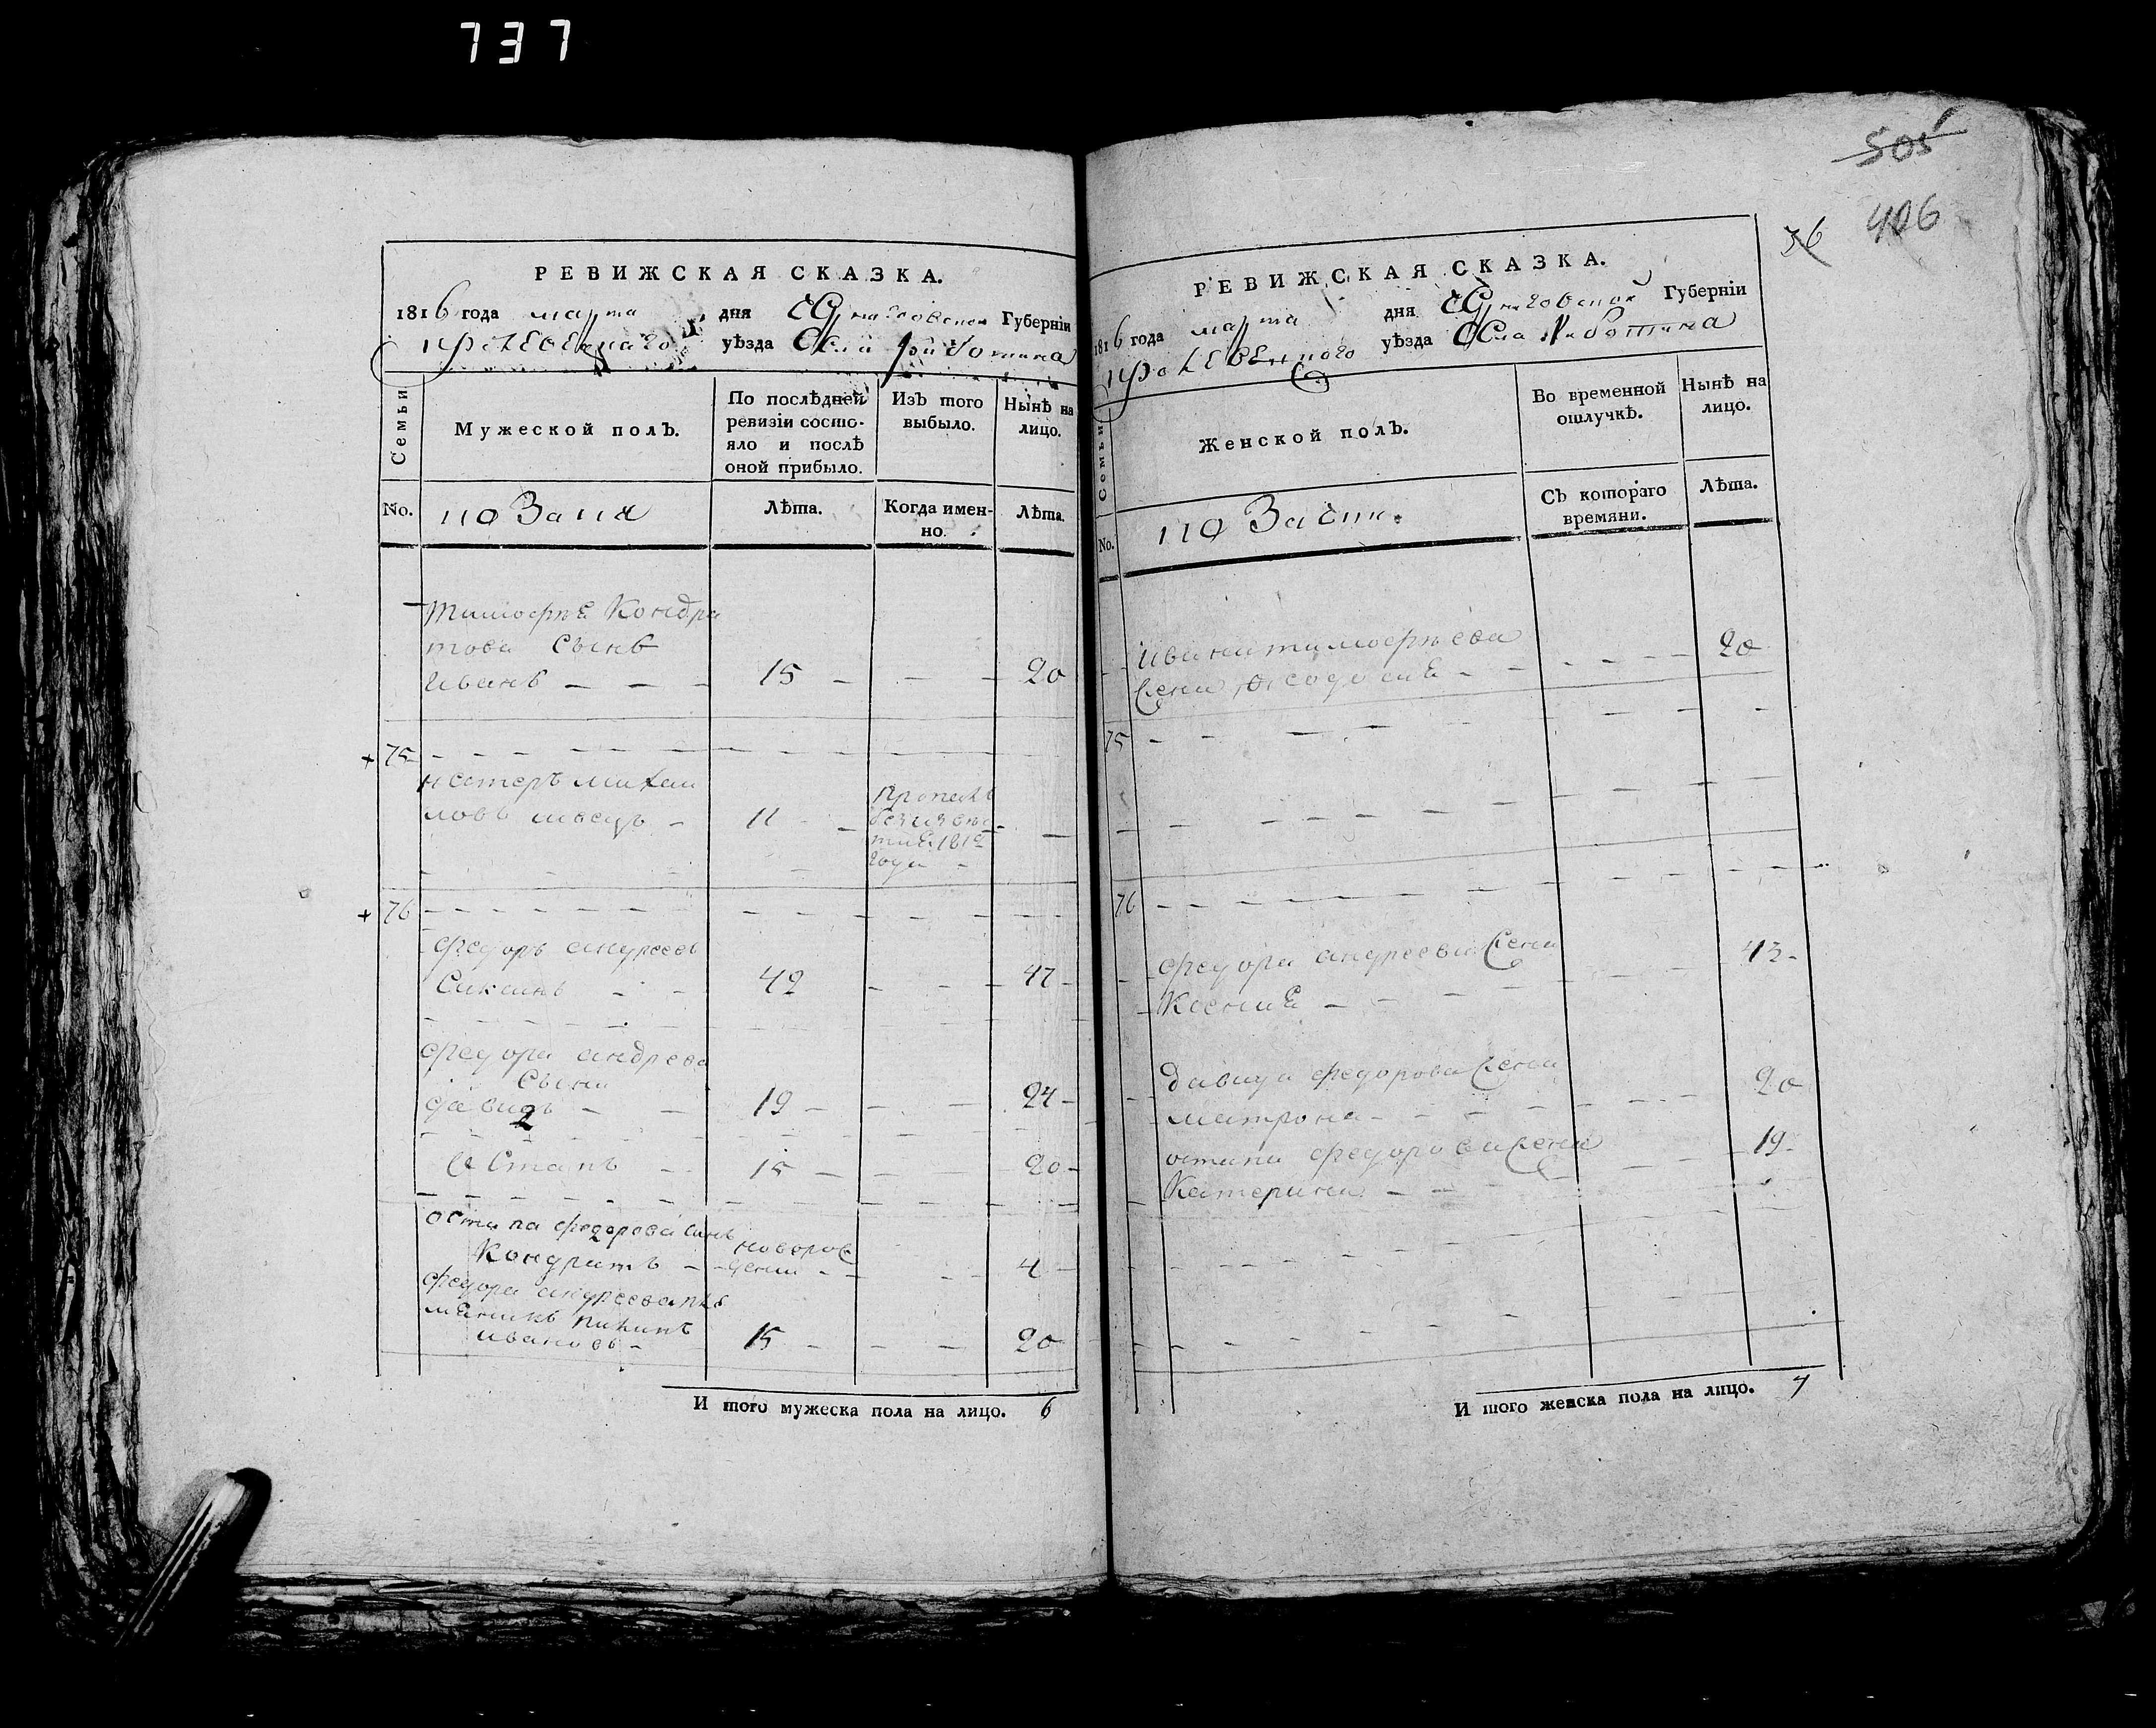 737
505
406
36
РЕВИЖСКАЯ СКАЗКА.
1816 года марта дня Черниговской Губерніи
уѣзда Села Риботина
Семьи
Мужеской полъ.
По послѣдней ревизіи состояло и послѣ оной прибыло.
Изъ того выбыло.
Нынѣ на лицо.
No.
Лѣта.
Когда именно.
Лѣта.
Тимофѣе Кондра
това Сынъ
Иванъ 15 20
75
Нестеръ Михаи
ловъ 11
1812
года
76
Федоръ андреевъ
42 47
Федора андреева
Сыни
давидъ 19 24
2
Остапъ 15 20
Остапа федорова Синъ новорож
Кондратъ денни 4
федора андреева пле
меникъ
ивановъ 15 20
И того мужеска пола на лицо. 6
РЕВИЖСКАЯ СКАЗКА.
1816 года марта дня Черниговской Губерніи
уѣзда Села Риботина
Семьи
Женской полъ.
Во временной отлучкѣ.
Нынѣ на лицо.
No.
Съ котораго времяни.
Лѣта.
Ивана тимофѣева 20
жена
75
76
федора андреева жена 43
Ксение
давида федорова жена 20
матрона
остапа федорова жена 19
Катерина
И того женска пола на лицо. 4